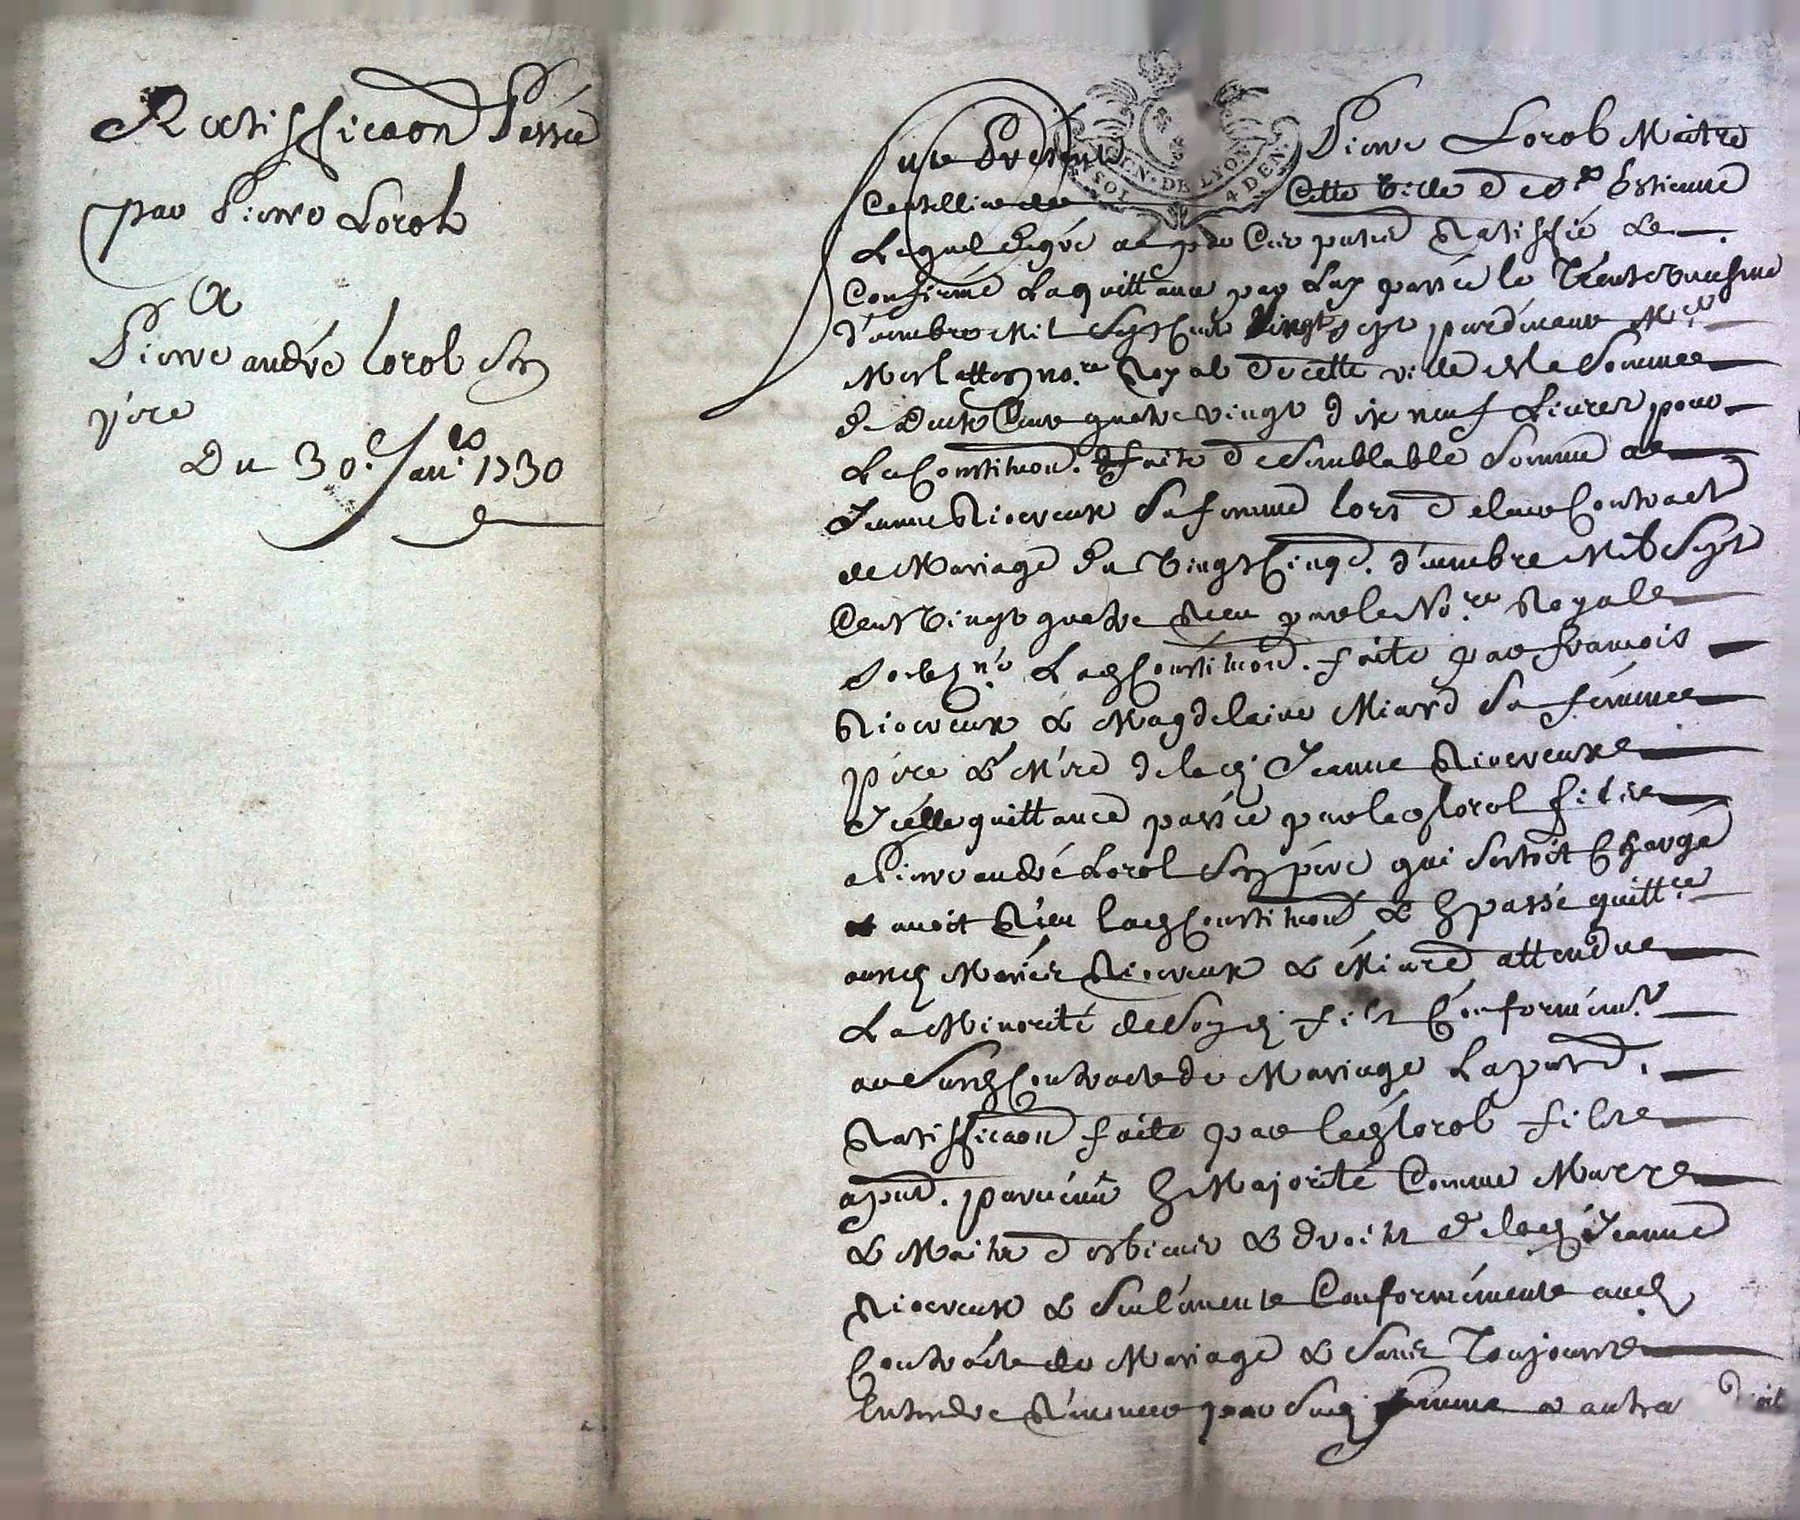 Ratiffica͠on Passée
par Pierre Lorol
A
Pierre andré lorol Son
pére
Du 30.e Janv.er 1730
Fut Present Pierre Lorol Maitre
GEN. DE LYON
SOLS 4 DEN.
Coutellier de Cette Ville de St Estienne
Lequel de gré a par Ces putes Ratiffié &
Confirmé La quittance par Luy passée le Trente uniesme
d'ecembre Mil Sept Cent Vingt sept pardevant Me
no.re Royal de cette ville de la Somme
de Deux Cent quatre vingt dix neuf Livres pour
La Constituon. faite de Semblable Somme a
Jeanne Riocreux Sa femme lors de leur Contract
de Mariage du Vingt Cinqe. d'ecembre Mil Sept
Cent Vingt quatre Reçu par le No.re Royal
Soubzné Lad Constituon. faite par francois
Riocreux & Magdelaine Miard Sa femme
pére & Mére de lad Jeanne Riocreux
Icelle quittance passée par led lorol fils
a Pierre andré Lorol Son pére qui Sestoit Chargé
& avoit Reçu lad Constituon & passé quittce
ausd Mariés Riocreux & Miard attendu
La Minorité de Sond fils Conformémt
au Susd Contract de Mariage La pnte.
Ratiffica͠on faite par led lorol fils
apnt. parvenu En Majorité Comme Mary
& Maitre des biens & droits de lad Jeanne
Riocreux & Seulement Conformément aud
Contract de Mariage & Sans Toujours
Entendre par Sad femme a autre Droit